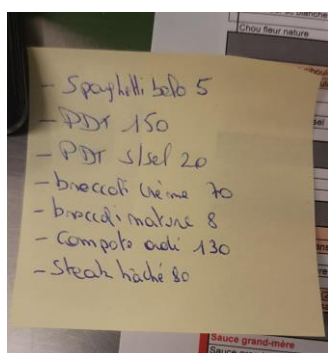 Chou fleur nature
- Spaghetti bolo 5
- PDT 150
- PDT s/sel 20
- broccoli crème 70
- broccoli nature 8
- Compote ordi 130
- Steak hâché 80
Sauce grand-mère